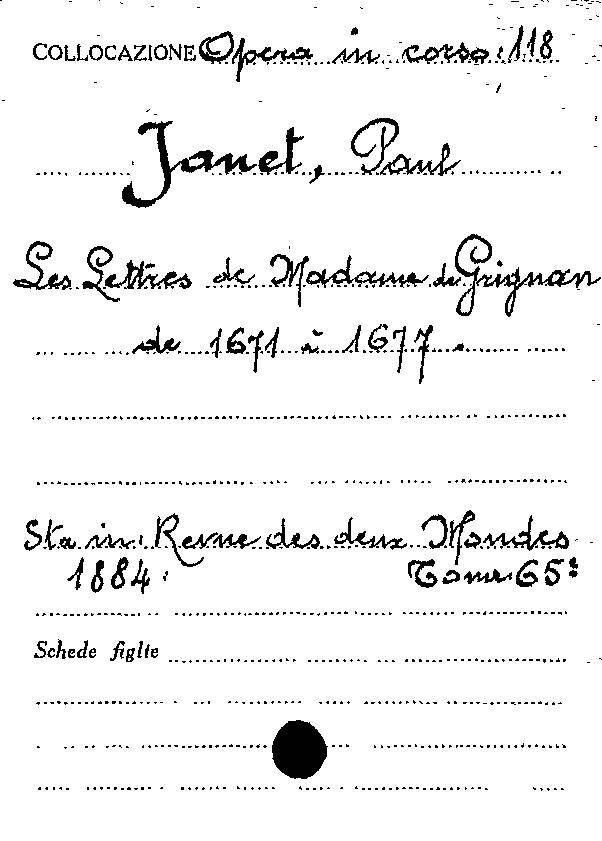 COLLOCAZIONE Opera in corso: 118
Janet, Paul
Les Lettres de Madame de Grignan
de 1671 à 1677.
Sta in: Revue des deux Mondes
1884. Tome 65:
Schede figlie